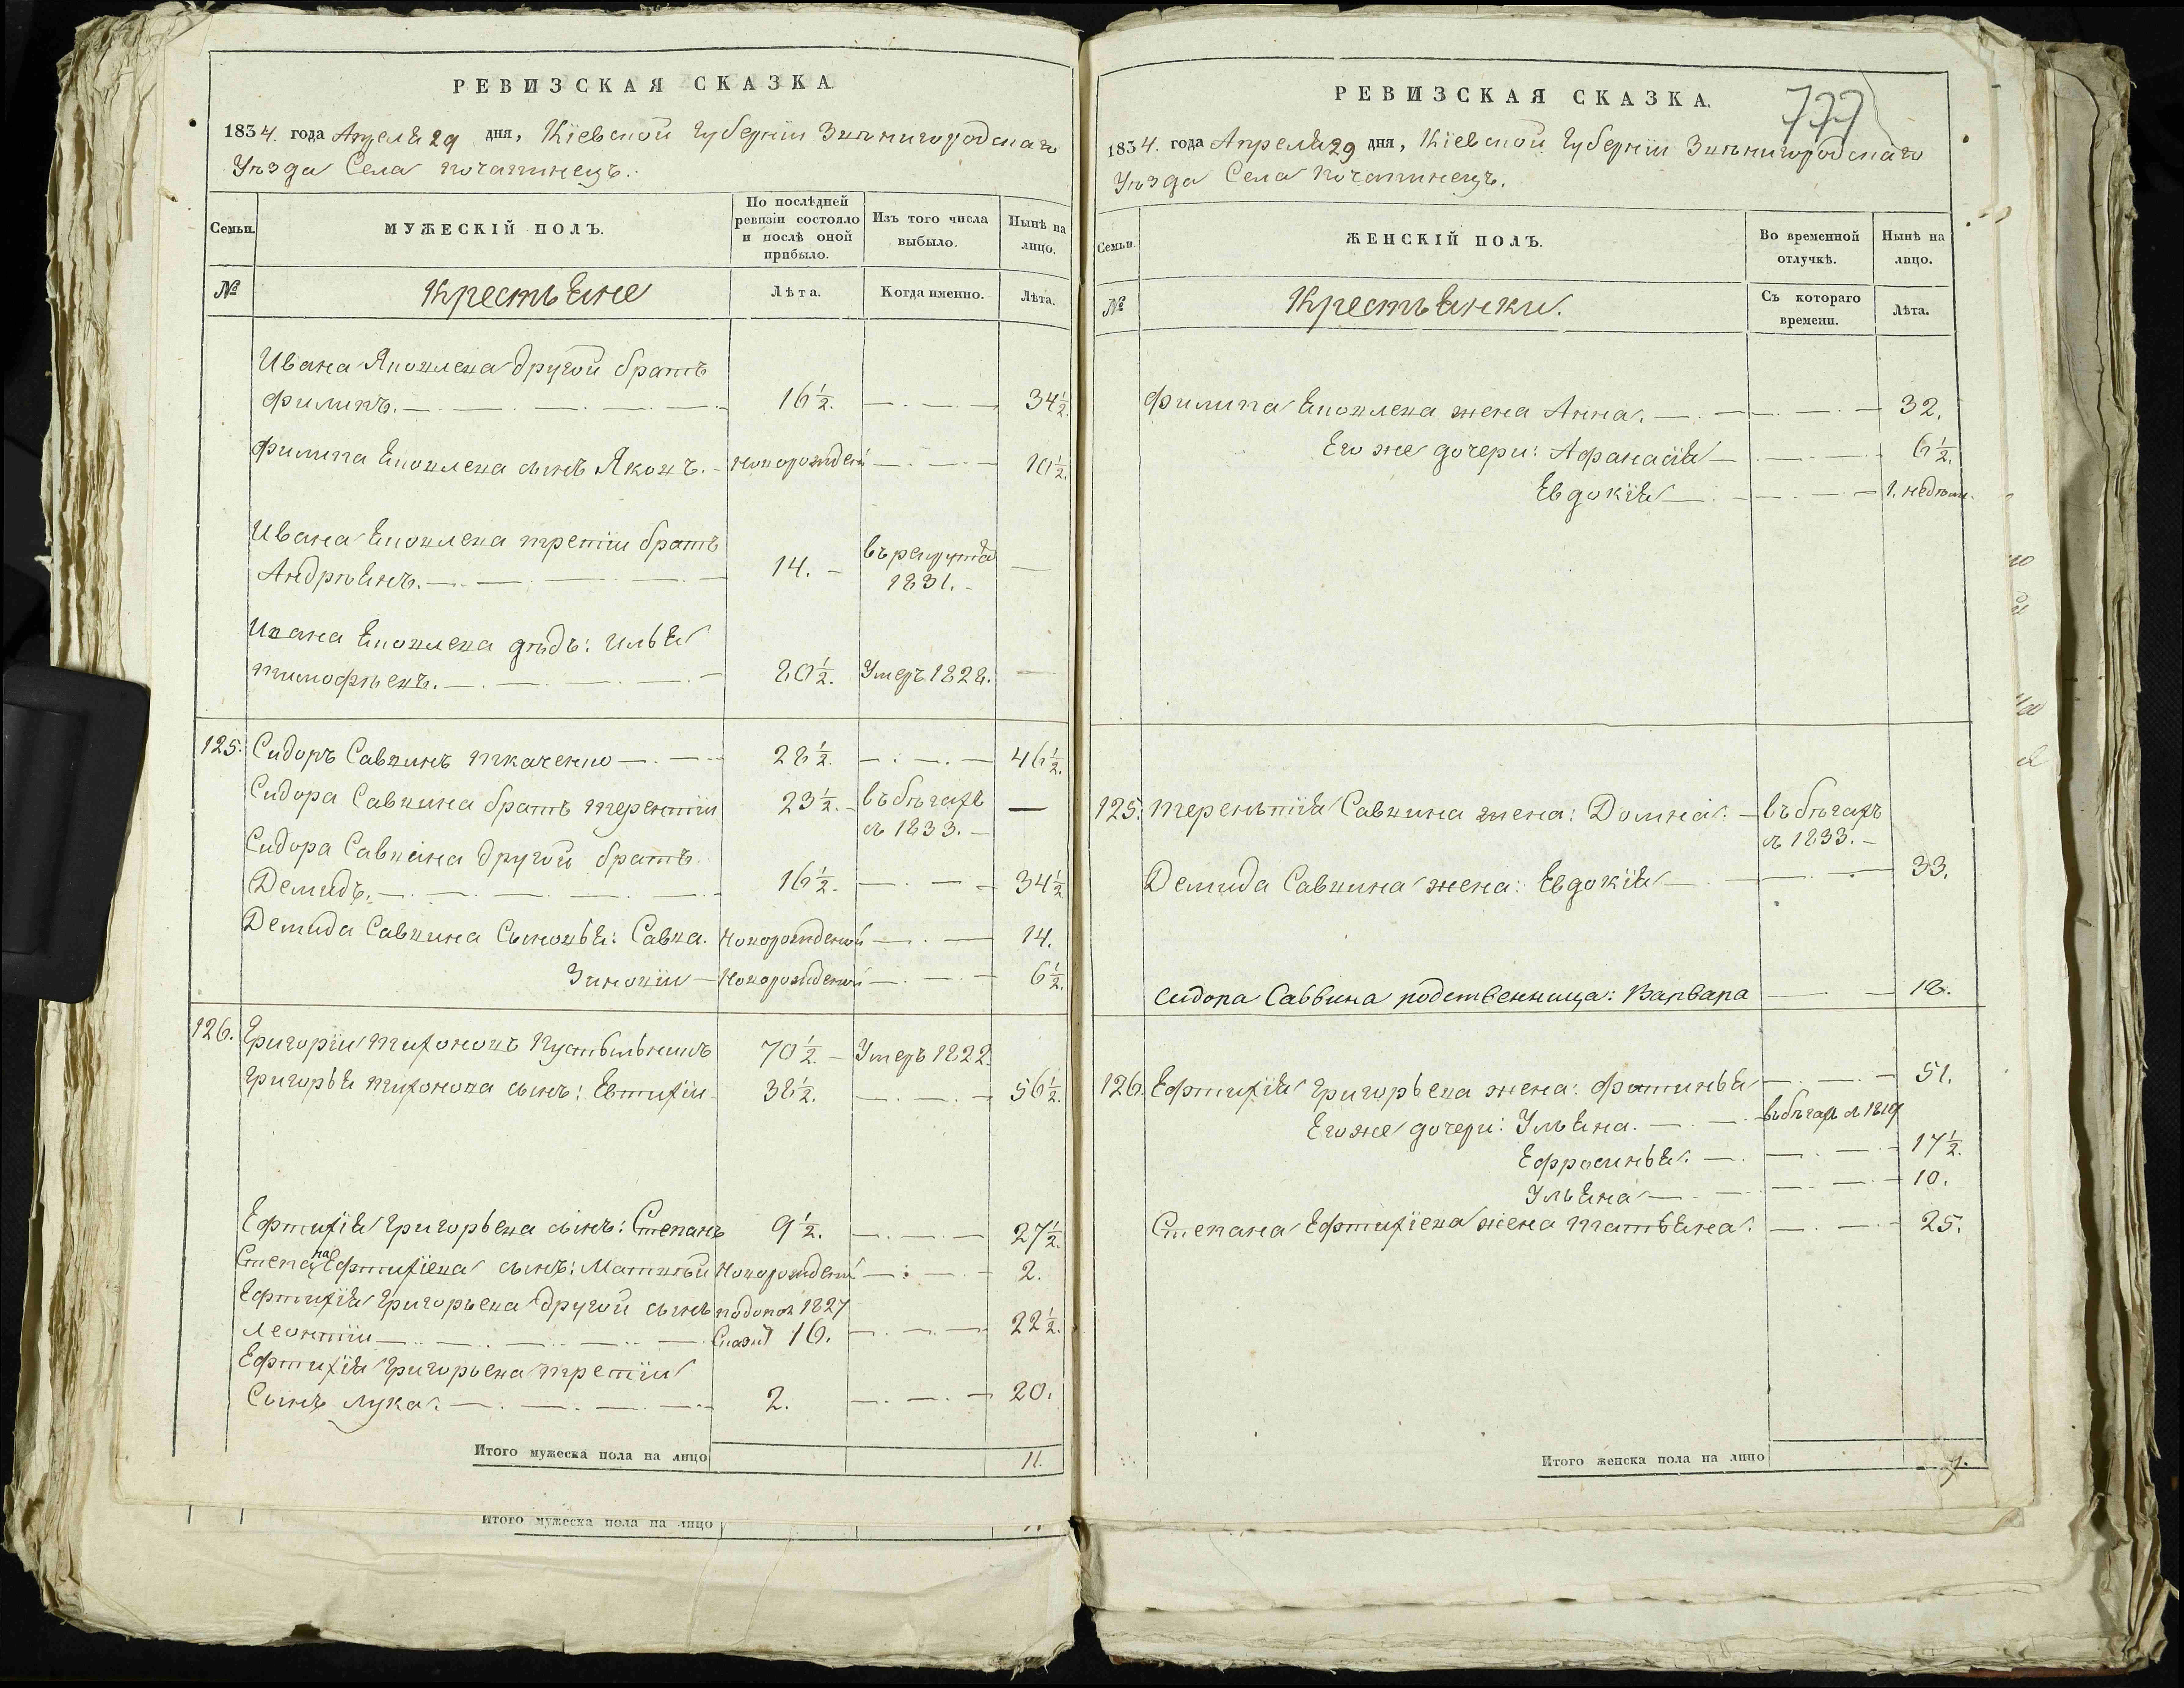 РЕВИЗСКАЯ СКАЗКА.
1834. года Апреля 29 дня, Кіевской Губерніи Звенигородскаго
Уѣзда Села Почапинецъ.
Семьи.
МУЖЕСКІЙ ПОЛЪ.
По послѣдней ревизіи состояло и послѣ оной прибыло.
Изъ того числа выбыло.
Нынѣ на лицо.
№
Крестьяне
Лѣта.
Когда именно.
Лѣта.
Ивана Яковлева другой братъ
Филипъ. 16½. 34½.
Филипа Яковлева сынъ Яковъ. новорожден 10½.
Ивана Яковлева третій братъ
Андрѣянъ. 14. въ рекрута 1831.
Ивана Яковлева дѣдъ: Илья
Тимофѣевъ. 80½. Умеръ 1828.
125. Сидоръ Саввинъ Ткаченко 28½. 46½.
Сидора Саввина братъ Терентій 23½. въ бѣгахъ съ 1833.
Сидора Саввина другой братъ
Демидъ. 16½. 34½
Демида Саввина Сыновья: Савва. новорожденой 14.
Зиновій новорожденой 6½.
126. Григорій Тихоновъ 70½. Умеръ 1822.
Григорья Тихонова сынъ: Евтихій 38½. 56½.
Ефтихія Григорьева сынъ: Степанъ 9½. 27½.
Степана Ефтихіева сынъ: Матвѣй новорожденой 2.
Ефтихія Григорьева другой сынъ 1827
Леонтій 16. 22½.
Ефтихія Григорьева третій
Сынъ Лука. 2. 20.
Итого мужеска пола на лицо 11.
Итого мужеска пола на лицо
РЕВИЗСКАЯ СКАЗКА.
777
1834. года Апреля 29 дня, Кіевской Губерніи Звенигородскаго
Уѣзда Села Почапинецъ.
Семьи.
ЖЕНСКІЙ ПОЛЪ.
Во временной отлучкѣ.
Нынѣ на лицо.
№
Крестьянки.
Съ котораго времени.
Лѣта.
Филипа Яковлева жена Анна. 32.
Его же дочери: Афанасія 6½.
Евдокія 1. недѣли.
125. Терентія Саввина жена: Домна. въ бѣгахъ
съ 1833.
Демида Саввина жена: Евдокія 33.
Сидора Саввина родственница: Варвара 18.
126. Ефтихія Григорьева жена: Фотинья 51.
Его же дочери: Ульяна. въ бѣгахъ съ 1819
Ефросинья. 17½.
Ульяна 10.
Степана Ефтихіева жена Татьяна. 25.
Итого женска пола на лицо 7.